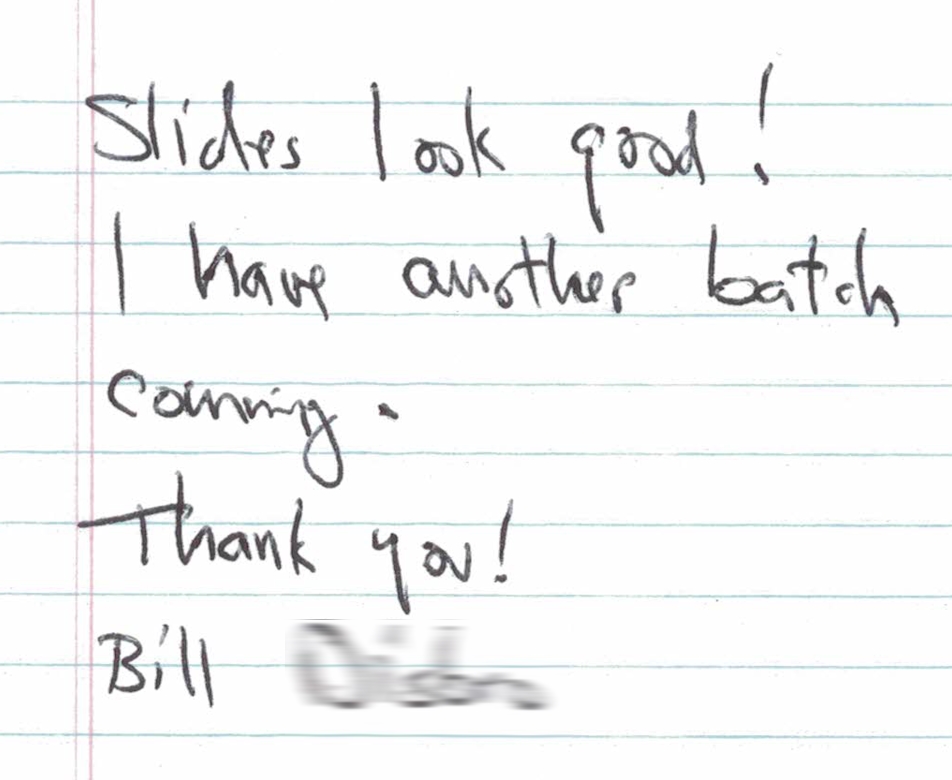 Slides look good!
I have another batch
coming.
Thank you!
Bill